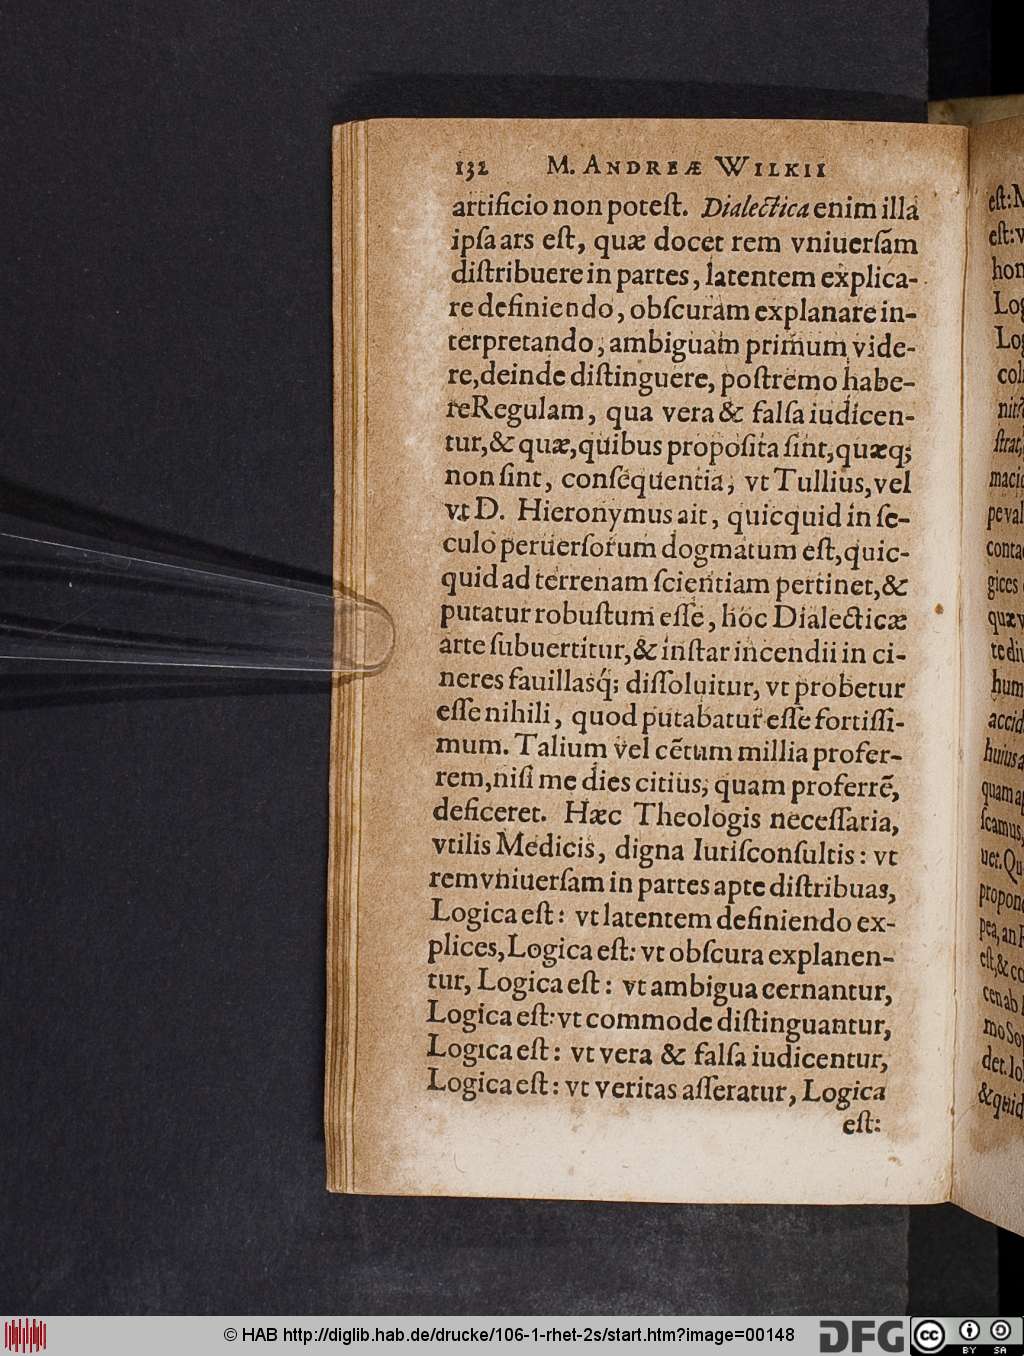 132 M. ANDREÆ WILKII
artificio non poteſt. Dialectica enim illa
ipſa ars eſt, quæ docet rem vniuerſam
diſtribuere in partes, latentem explica-
re definiendo, obſcuram explanare in-
terpretando, ambiguam primum vide-
re, deinde diſtinguere, poſtremo habe-
re Regulam, qua vera & falſa iudicen-
tur, & quæ, quibus propoſita ſint, quæq;
non ſint, conſequentia, vt Tullius, vel
vt D. Hieronymus ait, quicquid in ſe-
culo peruerſorum dogmatum eſt, quic-
quid ad terrenam ſcientiam pertinet, &
putatur robuſtum eſſe, hoc Dialecticæ
arte ſubuertitur, & inſtar incendii in ci-
neres fauillasq́; diſſoluitur, vt probetur
eſſe nihili, quod putabatur eſſe fortiſſi-
mum. Talium vel cẽtum millia profer-
rem, niſi me dies citius, quam proferrẽ,
deficeret. Hæc Theologis neceſſaria,
vtilis Medicis, digna Iuriſconſultis: vt
rem vniuerſam in partes apte diſtribuas,
Logica eſt: vt latentem definiendo ex-
plices, Logica eſt: vt obſcura explanen-
tur, Logica eſt: vt ambigua cernantur,
Logica eſt: vt commode diſtinguantur,
Logica eſt: vt vera & falſa iudicentur,
Logica eſt: vt veritas aſſeratur, Logica
eſt:
eſt:
eſt:
hon
Log
Log
col
ſtrat,
macic
pe val
conta
gices
quæ v
te div
hum
accid
huius a
quam ap
ſcamus,
uet. Qu
propon
pea, an
eſt, & co
cen ab
mo So
det. Io
& quid
© HAB http://diglib.hab.de/drucke/106-1-rhet-2s/start.htm?image=00148
DFG
cc
BY SA